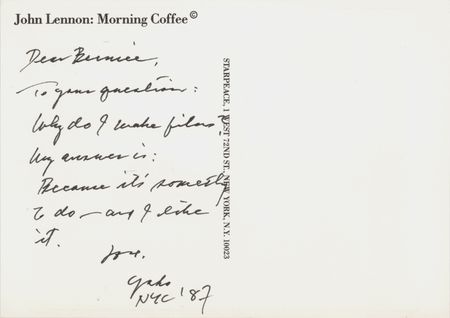 John Lennon: Morning Coffee©
Dear Bernice,
To your question:
Why do I make films?
My answer is:
Because it's something
to do – and I like
it.
love,
yoko
NYC '87
STARPEACE, 1 WEST 72ND ST. NEW YORK, N.Y. 10023